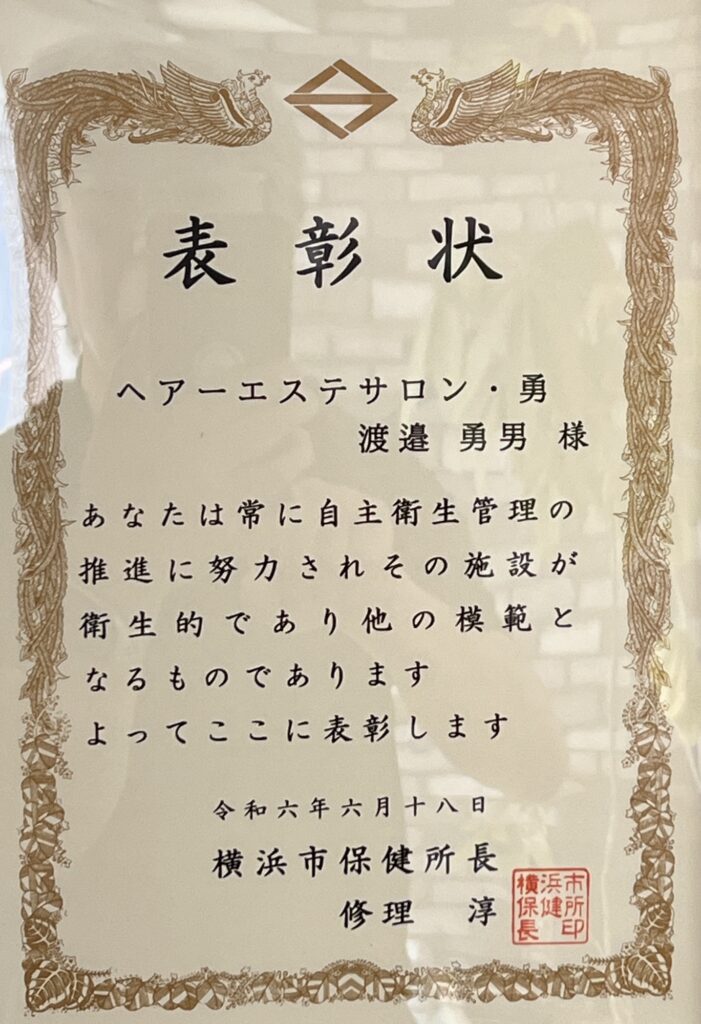 表彰状
ヘアーエステサロン・勇
渡邉 勇男 様
あなたは常に自主衛生管理の
推進に努力されその施設が
衛生的であり他の模範と
なるものであります
よってここに表彰します
令和六年六月十八日
横浜市保健所長
修理 淳
横浜市
保健所
長印